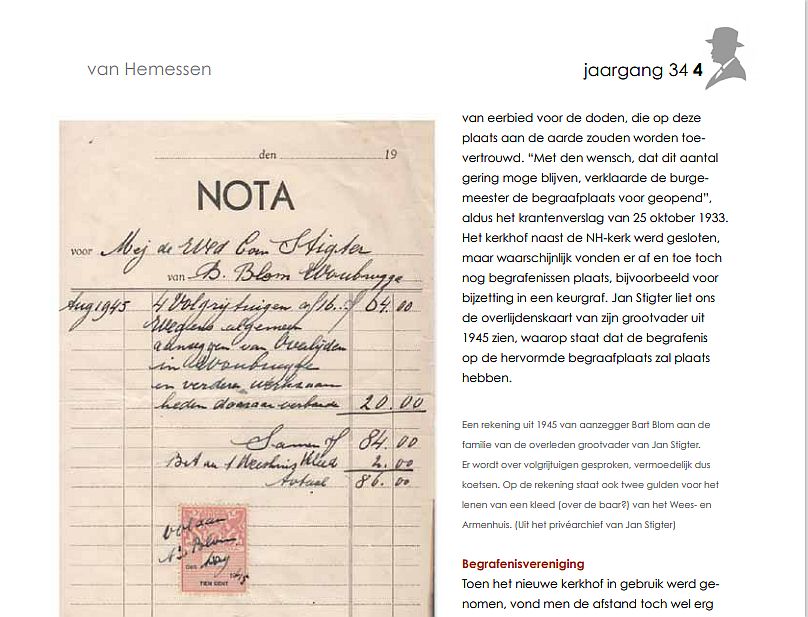 van Hemessen
jaargang 34 4
den 19
NOTA
voor Mej de Wed Van Stigter
van B. Blom Woubrugge
Aug 1945 4 Volgrijtuigen a f 16.- f 64.00
Wegens algemeen
aanzeggen van Overlijden
in Woubrugge
en verdere werkzaam
heden daaraan verbonde 20.00
Samen f 84.00
Bet aan 1 Weeshuis Kleed 2.00
Totaal 86.00
Voldaan
B Blom
TIEN CENT
van eerbied voor de doden, die op deze
plaats aan de aarde zouden worden toe-
vertrouwd. “Met den wensch, dat dit aantal
gering moge blijven, verklaarde de burge-
meester de begraafplaats voor geopend”,
aldus het krantenverslag van 25 oktober 1933.
Het kerkhof naast de NH-kerk werd gesloten,
maar waarschijnlijk vonden er af en toe toch
nog begrafenissen plaats, bijvoorbeeld voor
bijzetting in een keurgraf. Jan Stigter liet ons
de overlijdenskaart van zijn grootvader uit
1945 zien, waarop staat dat de begrafenis
op de hervormde begraafplaats zal plaats
hebben.
Een rekening uit 1945 van aanzegger Bart Blom aan de
familie van de overleden grootvader van Jan Stigter.
Er wordt over volgrijtuigen gesproken, vermoedelijk dus
koetsen. Op de rekening staat ook twee gulden voor het
lenen van een kleed (over de baar?) van het Wees- en
Armenhuis. (Uit het privéarchief van Jan Stigter)
Begrafenisvereniging
Toen het nieuwe kerkhof in gebruik werd ge-
nomen, vond men de afstand toch wel erg